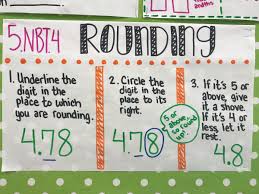 5.NBT.4 ROUNDING
1. Underline the
digit in the
place to which
you are rounding.
4.78
2. Circle the
digit in the
place to its
right.
4.78
5 or
above,
to round
up!
3. If it's 5 or
above, give it
a shove.
If it's 4 or
less, let it
rest.
4.8